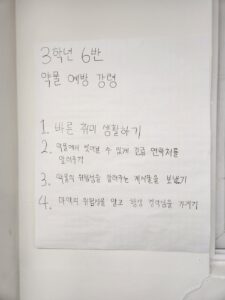 3학년 6반
약물 예방 강령
1. 바른 취미 생활하기
2. 약물에서 벗어날 수 있게 긴급 연락처를
알려주기
3. 약물의 위험성을 알려주는 게시물을 보내기
4. 마약의 위험성을 알고 항상 경각심을 가지기